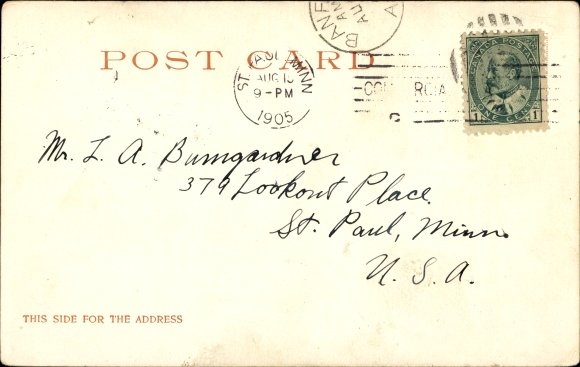 POST CARD
BANF
AM
AU
A
ST. PAUL MINN
AUG 1
9-PM
1905
CANADA POSTAGE
1 ONE CENT 1
Mr. L. A. Bumgardner
379 Lookout Place
St. Paul, Minn.
U. S. A.
THIS SIDE FOR THE ADDRESS